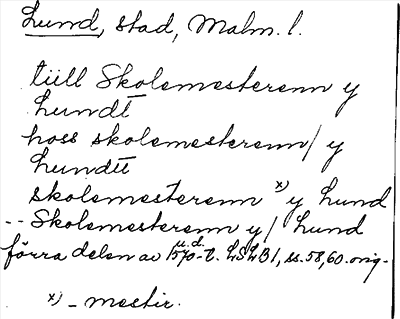 Lund, stad, Malm. l.
tiill Skolemesterenn y
Lundt
hoss skolemesterenn/ y
Lundtt
skolemesterenn x) y Lund
-- Skolemesterenn y/ Lund
u.d.
förra delen av 1570-t. LSLB1, ss. 58, 60. orig.
x) - mestir.